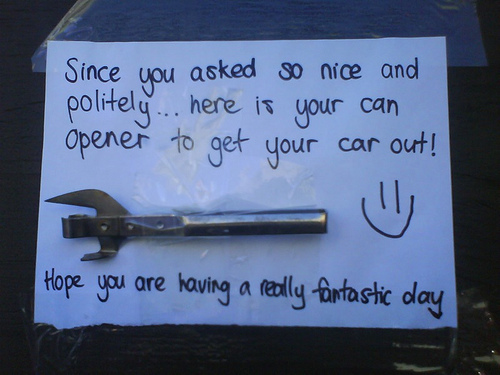 Since you asked so nice and
politely... here is your can
opener to get your car out!
Hope you are having a really fantastic day